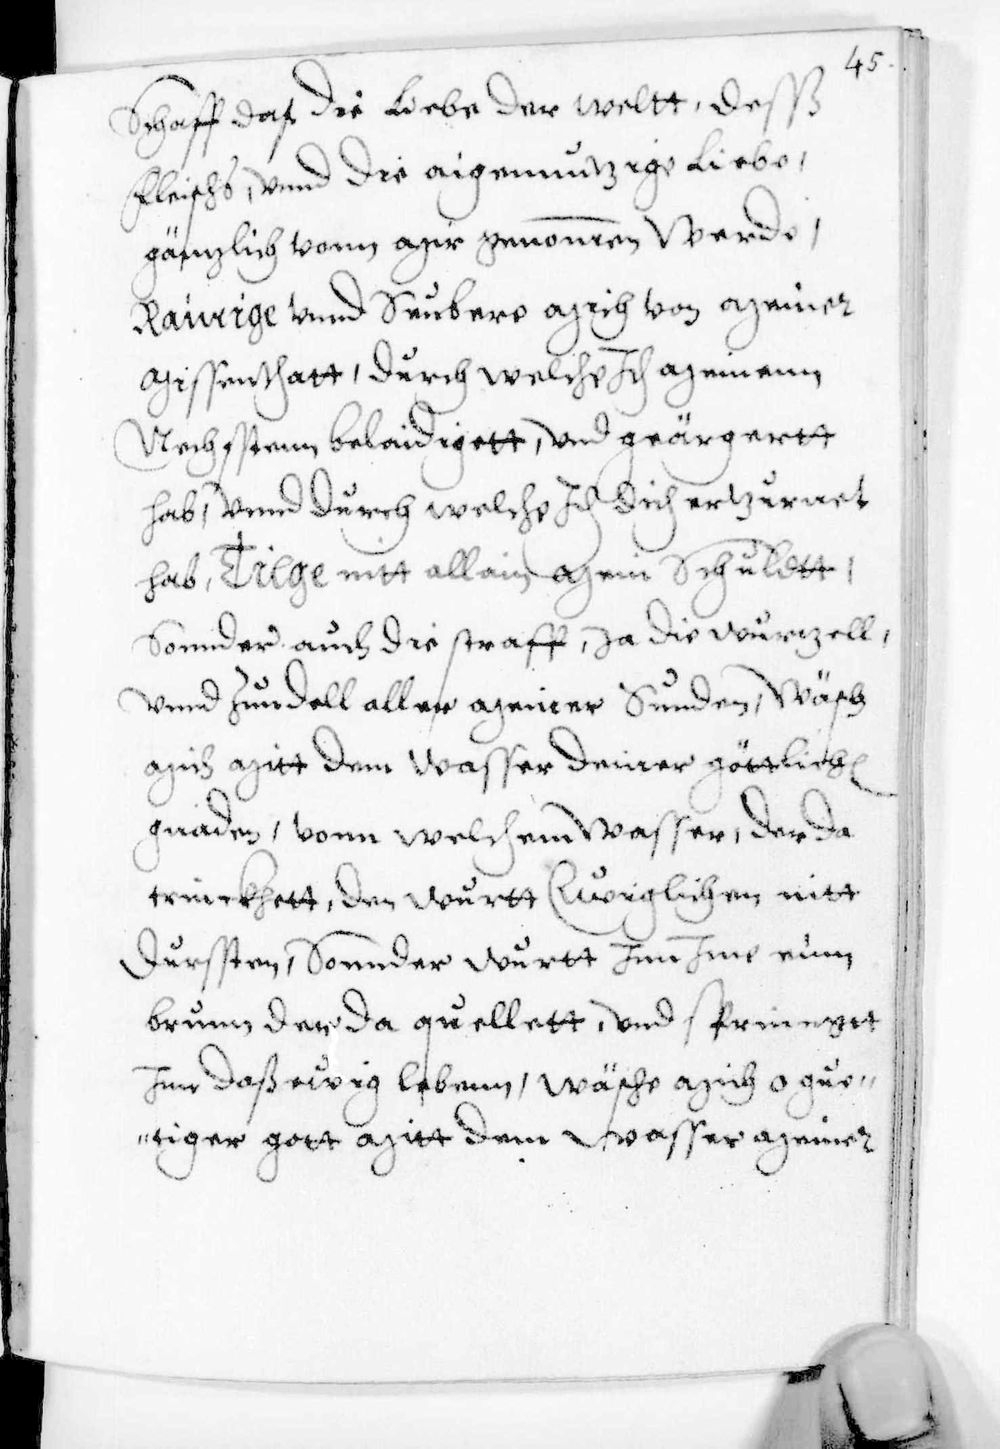 45.
Schaff das die Liebe der weltt, desß
fleischs, vnnd die aigennutzige Liebe,
gäntzlich vonn mir genommen werde,
Rainige vnnd Seubere mich von meiner
Missenthatt, durch welche Ich meinenn
Nechsstenn belaidigett, vnd geärgertt
hab, vnnd durch welche Ich dich ertzurnet
hab, Tilge nitt allain mein Schuldtt,
Sonnder auch die straff, Ja die wurtzell,
vnnd Zundell aller meiner Sunden, wäsch
mich mitt dem wasser deiner göttlich
gnaden, vonn welchem wasser, der da
trinckhett, den wurtt Ewiglichen nitt
durssten, Sonnder wurtt Inn Ime einn
brunn der da quellett, vnd springtt
Inn daß ewig lebenn, wäsche mich o gue„
„tiger gott mitt dem wasser meiner